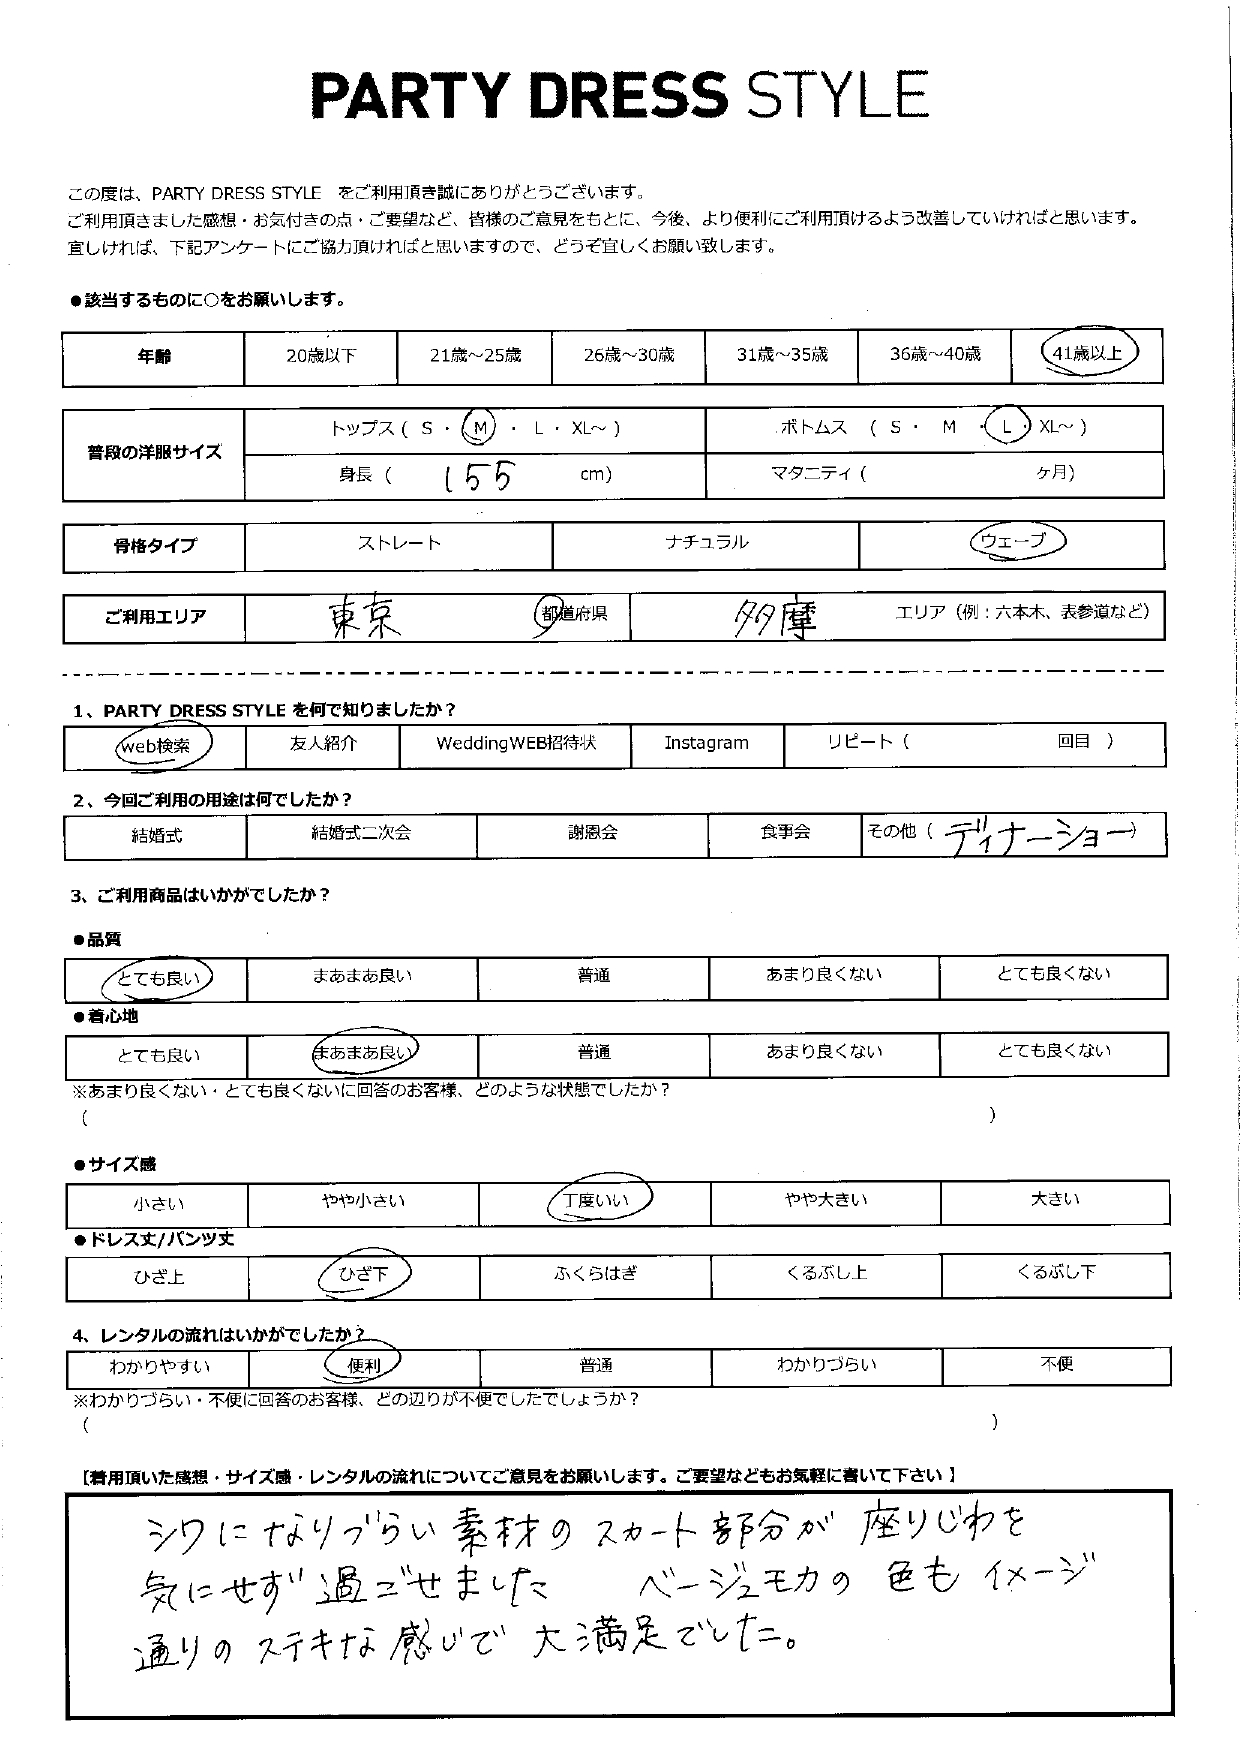 PARTY DRESS STYLE
この度は、PARTY DRESS STYLE をご利用頂き誠にありがとうございます。
ご利用頂きました感想・お気付きの点・ご要望など、皆様のご意見をもとに、今後、より便利にご利用頂けるよう改善していければと思います。
宜しければ、下記アンケートにご協力頂ければと思いますので、どうぞ宜しくお願い致します。
●該当するものに○をお願いします。
年齢 20歳以下 21歳～25歳 26歳～30歳 31歳～35歳 36歳～40歳 41歳以上
普段の洋服サイズ トップス ( S ・ M ・ L ・ XL～ ) ボトムス ( S ・ M ・ L ・ XL～ )
身長 ( 155 cm) マタニティ ( ヶ月)
骨格タイプ ストレート ナチュラル ウェーブ
ご利用エリア 東京 都道府県 多摩 エリア（例：六本木、表参道など）
1、PARTY DRESS STYLE を何で知りましたか？
web検索 友人紹介 WeddingWEB招待状 Instagram リピート ( 回目 )
2、今回ご利用の用途は何でしたか？
結婚式 結婚式二次会 謝恩会 食事会 その他 ( ディナーショー )
3、ご利用商品はいかがでしたか？
●品質
とても良い まあまあ良い 普通 あまり良くない とても良くない
●着心地
とても良い まあまあ良い 普通 あまり良くない とても良くない
※あまり良くない・とても良くないに回答のお客様、どのような状態でしたか？
( )
●サイズ感
小さい やや小さい 丁度いい やや大きい 大きい
●ドレス丈/パンツ丈
ひざ上 ひざ下 ふくらはぎ くるぶし上 くるぶし下
4、レンタルの流れはいかがでしたか？
わかりやすい 便利 普通 わかりづらい 不便
※わかりづらい・不便に回答のお客様、どの辺りが不便でしたでしょうか？
( )
【着用頂いた感想・サイズ感・レンタルの流れについてご意見をお願いします。ご要望などもお気軽に書いて下さい 】
シワになりづらい素材のスカート部分が座りじわを
気にせず過ごせました ベージュモカの色もイメージ
通りのステキな感じで大満足でした。